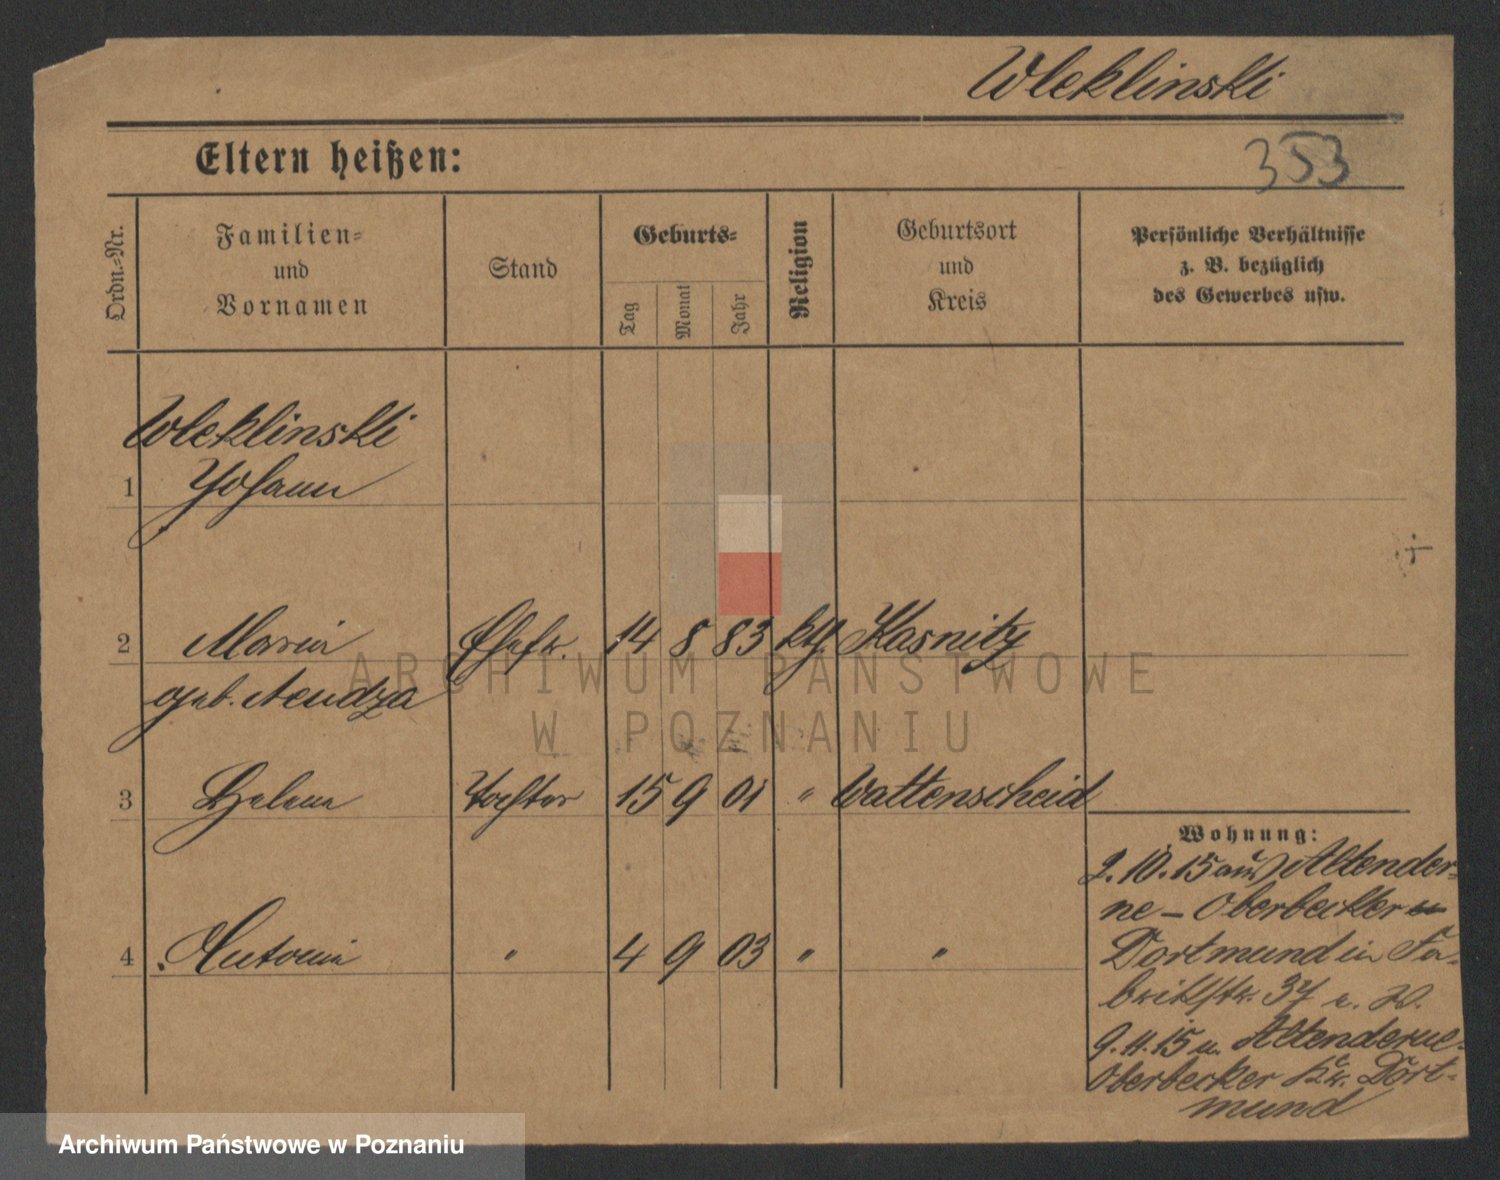 Wleklinski
Eltern heißen:
353
Ordn.-Nr.
Familien-
und
Vornamen
Stand
Geburts-
Tag
Monat
Jahr
Religion
Geburtsort
und
Kreis
Persönliche Verhältnisse
z. B. bezüglich
des Gewerbes usw.
Wleklinski
1 Johann
2 Maria Ehefr. 14 8 83 kth. Kasnitz
geb. Nendza
3 Helene Tochter 15 9 01 " Wattenscheid
4 Antonia " 4 9 03 " "
Wohnung:
2.10.15 aus Altender-
ne - Oberbecker
Dortmund in Fa-
brikstr. 37
9.11.15 n. Altenderne-
Oberbecker Kr. Dort-
mund
ARCHIWUM PAŃSTWOWE
W POZNANIU
Archiwum Państwowe w Poznaniu